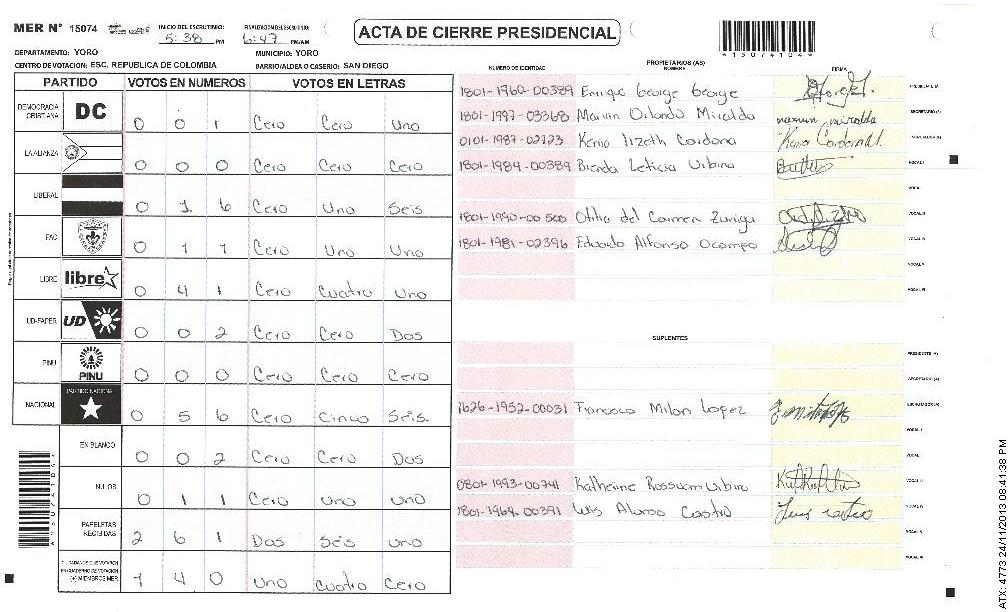 MER N° 15074
INICIO DEL ESCRUTINIO: 5:38 PM
FINALIZACION DEL ESCRUTINIO: 6:47 PM/AM
ACTA DE CIERRE PRESIDENCIAL
*15074104*
DEPARTAMENTO: YORO
MUNICIPIO: YORO
CENTRO DE VOTACION: ESC. REPUBLICA DE COLOMBIA
BARRIO/ALDEA O CASERIO: SAN DIEGO
PARTIDO VOTOS EN NUMEROS VOTOS EN LETRAS
DEMOCRACIA CRISTIANA DC 0 0 1 Cero Cero Uno
LA ALIANZA 0 0 0 Cero Cero Cero
LIBERAL 0 1 6 Cero Uno Seis
PAC 0 1 1 Cero Uno Uno
LIBRE libre 0 4 1 Cero Cuatro Uno
UD-FAPER UD 0 0 2 Cero Cero Dos
PINU PINU 0 0 0 Cero Cero Cero
NACIONAL PARTIDO NACIONAL 0 5 6 Cero Cinco Seis
EN BLANCO 0 0 2 Cero Cero Dos
NULOS 0 1 1 Cero Uno Uno
PAPELETAS RECIBIDAS 2 6 1 Dos Seis Uno
CIUDADANOS QUE VOTARON EN CUADERNO DE VOTACION (+) MIEMBROS MER 1 4 0 Uno Cuatro Cero
PROPIETARIOS (AS)
NUMERO DE IDENTIDAD NOMBRE FIRMA
1801-1960-00389 Enrique George George PRESIDENTE (A)
1801-1997-03368 Marvin Orlando Miralda marvin miralda SECRETARIO (A)
0101-1987-02723 Kenia lizeth Cardona Kenia Cardona ESCRUTADOR (A)
1801-1984-00389 Brenda Leticia Urbina VOCAL I
VOCAL II
1801-1990-00500 Otilia del Carmen Zuniga VOCAL III
1801-1981-02396 Eduardo Alfonso Ocampo VOCAL IV
VOCAL V
VOCAL VI
SUPLENTES
PRESIDENTE (A)
SECRETARIO (A)
1626-1952-00031 Francisco Milon Lopez ESCRUTADOR (A)
VOCAL I
VOCAL II
0801-1993-00741 Katherine Rossuam Urbina VOCAL III
1801-1964-00391 Luis Alonso Castro Luis Castro VOCAL IV
VOCAL V
VOCAL VI
ATX: 4773 24/11/2013 08:41:38 PM